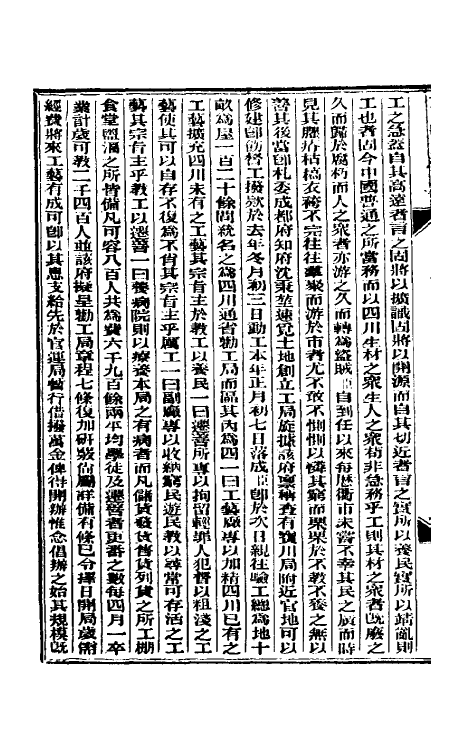 工之急蓋自其高遠者言之固將以擴識固將以開源而自其切近者言之實所以養民實所以靖亂則
工也者固今中國普通之所當務而以四川生材之衆生人之衆苟非急務乎工則其材之衆者旣廢之
久而歸於腐朽而人之衆者亦游之久而轉爲盜賊臣自到任以來每歷衢市未嘗不幸其民之庶而時
見其膚瘠枯槁衣褥不宗往往羣聚而游於市者尤不敢不惻惻以憐其窮而栗栗於不敎不養之無以
善其後當卽札委成都府知府沈秉堃速覓土地創立工局旋據該府稟稱查有寶川局附近官地可以
修建卽飭督工撥款於去年冬月初三日動工本年正月初七日落成臣卽於次日親往驗工總爲地十
畝爲屋一百二十餘間統名之爲四川通省勸工局而區其內爲四一曰工藝廠專以加精四川已有之
工藝擴充四川未有之工藝其宗旨主於敎工以養民一曰遷善所專以拘留輕罪人犯督以粗淺之工
藝使其可以自存不復爲不肖其宗旨主乎厲工一曰副廠專以收納窮民遊民敎以尋常可存活之工
藝其宗旨主乎敎工以遷善一曰養病院則以療養本局之有病者而凡儲貨發貨售貨列貨之所工棚
食堂盥湢之所皆備凡可容八百人共爲費六千九百餘兩平均學徒及遷善者更番之數每四月一卒
業計歲可敎二千四百人並該府擬呈勸工局章程七條復加研覈佔屬詳備有條已令擇日開局歲需
經費將來工藝有成可卽以其息支給先於官運局暫行借撥萬金俾得開辦惟念倡辦之始其規模旣